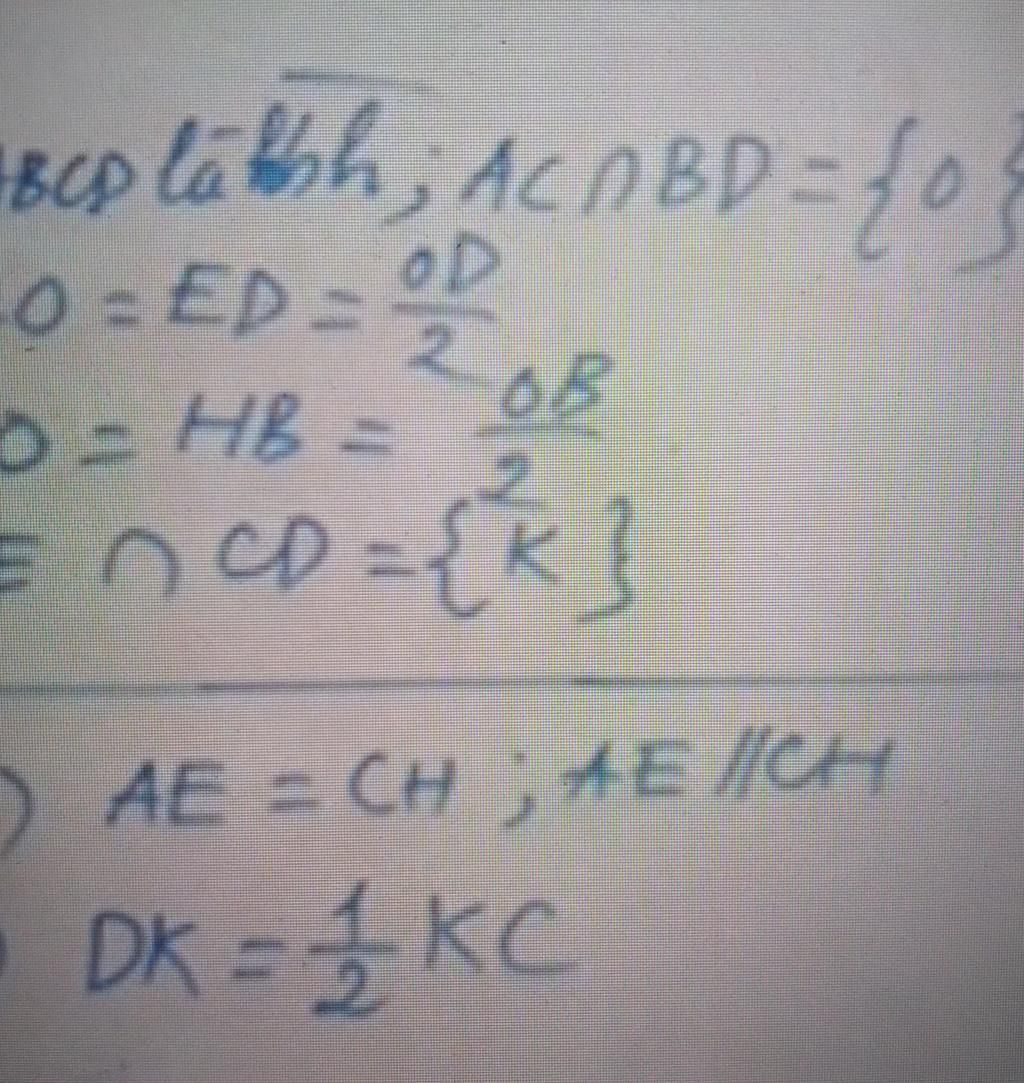 ABCD là hbh; AC∩BD={O}
O = ED = OD/2
O = HB = OB/2
E ∩ CD = {K}
) AE = CH ; AE // CH
DK = 1/2 KC